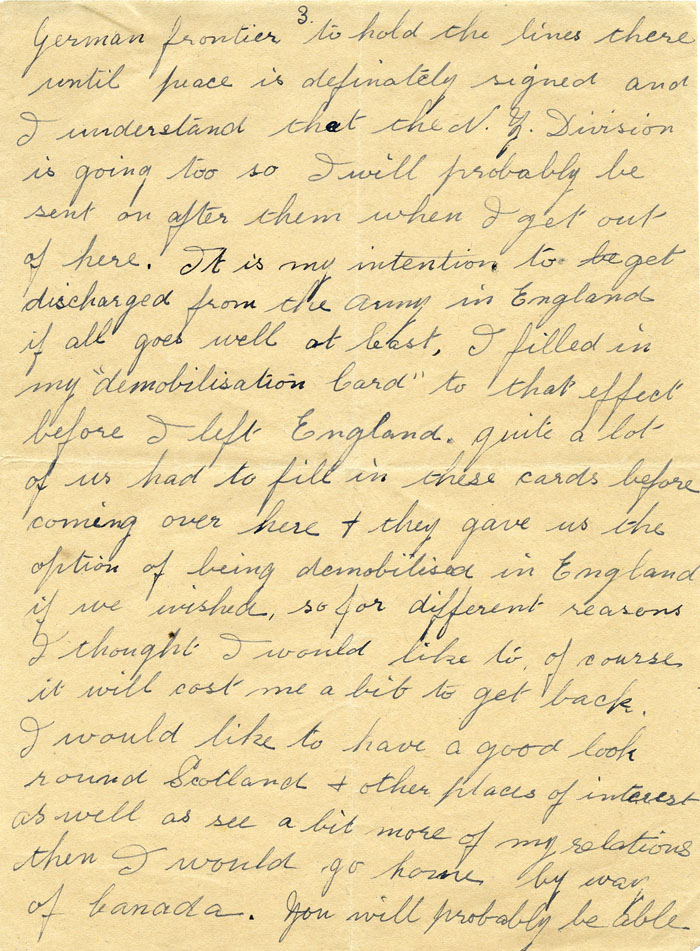 3.
German frontier to hold the lines there
until peace is definately signed and
I understand that the N. Z. Division
is going too so I will probably be
sent on after them when I get out
of here. It is my intention to be get
discharged from the army in England
if all goes well at least, I filled in
my "demobilisation Card" to that effect
before I left England. quite a lot
of us had to fill in these cards before
coming over here + they gave us the
option of being demobilised in England
if we wished, so for different reasons
I thought I would like to, of course
it will cost me a bit to get back.
I would like to have a good look
round Scotland + other places of interest
as well as see a bit more of my relations
then I would go home by way
of Canada. You will probably be able